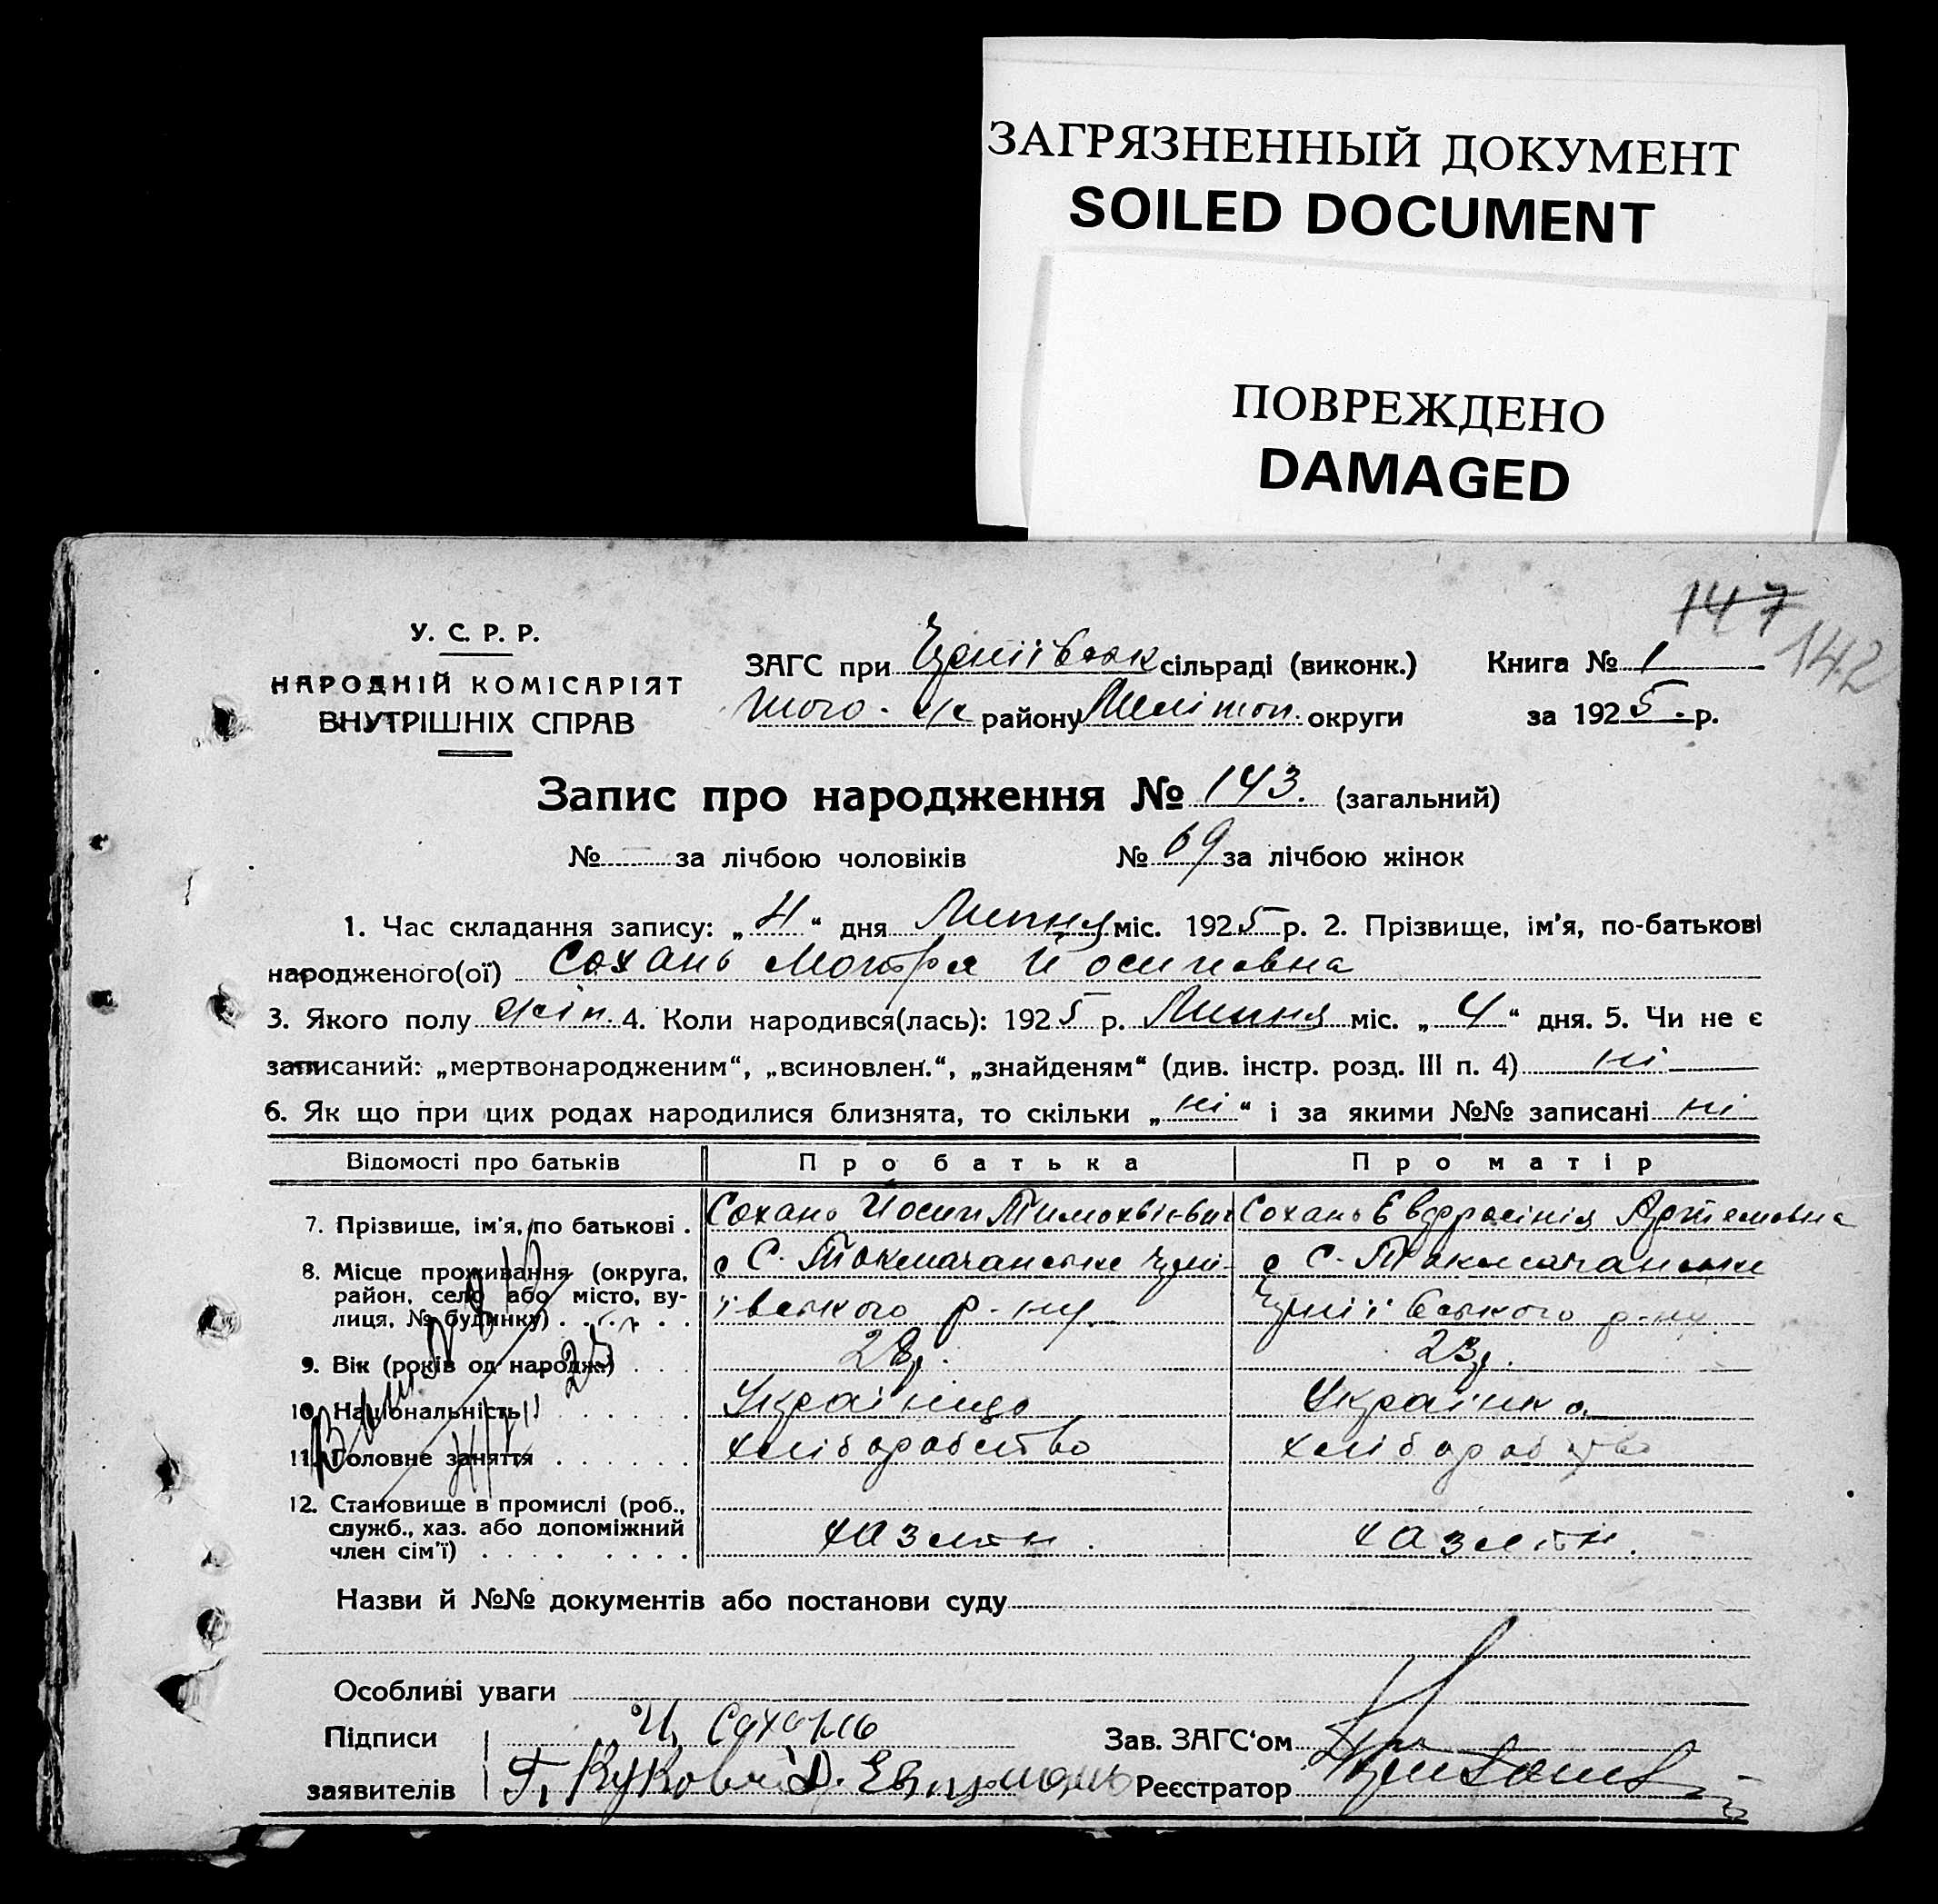 ЗАГРЯЗНЕННЫЙ ДОКУМЕНТ
SOILED DOCUMENT
ПОВРЕЖДЕНО
DAMAGED
147
142
У. С. Р. Р.
НАРОДНІЙ КОМІСАРІЯТ
ВНУТРІШНІХ СПРАВ
ЗАГС при сільраді (виконк.)
того ж району Мелітоп. округи
Книга № 1
за 1925 р.
Запис про народження № 143. (загальний)
№ — за лічбою чоловіків № 69 за лічбою жінок
1. Час складання запису: „4“ дня Липня міс. 1925 р. 2. Прізвище, ім'я, по-батькові
народженого(ої) Сохань Мотря Йосиповна
3. Якого полу жін. 4. Коли народився(лась): 1925 р. Липня міс. „4“ дня. 5. Чи не є
записаний: „мертвонародженим“, „всиновлен.“, „знайденям“ (див. інстр. розд. III п. 4) ні
6. Як що при цих родах народилися близнята, то скільки „ні“ і за якими №№ записані ні
Відомості про батьків Про батька Про матір
7. Прізвище, ім'я, по батькові . Сохань Йосип Тимохвієвич Сохань Евфросінія Артемовна
8. Місце проживання (округа, район, село або місто, вулиця, № будинку) . . . . .
с. Токмачанське
івського р-ну.
с. Токмачанське
р-ну.
9. Вік (років од народж.) . . . 28р. 23р.
10. Національність . . . . . . Українець Українка
11. Головне заняття . . . . . . хліборобство хліборобство
12. Становище в промислі (роб., служб., хаз. або допоміжний член сім'ї) . . . . . . . .
Назви й №№ документів або постанови суду
Особливі уваги
Підписи Й. Сохань Зав. ЗАГС'ом
заявителів Г. Реєстратор